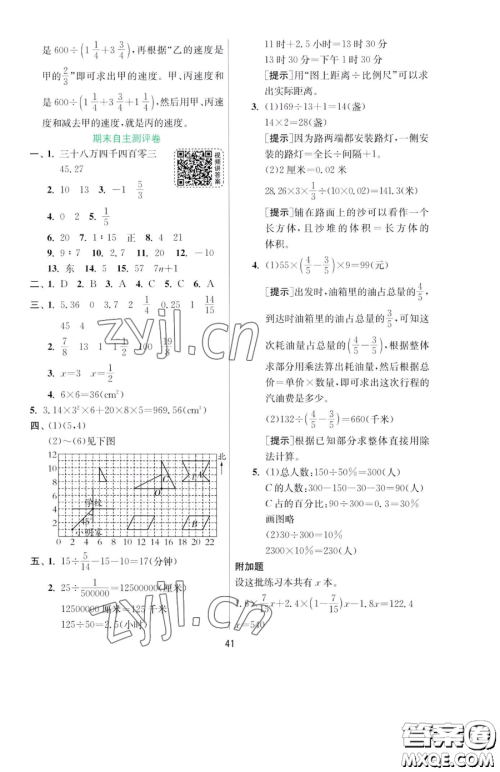 是600÷(1 1/4+3 3/4),再根据“乙的速度是
甲的2/3”即可求出甲的速度。甲、丙速度和
是600÷(1 1/4+3 3/4+1 1/4),然后用甲、丙速
度和减去甲的速度,就是丙的速度。
期末自主测评卷
一、1. 三十八万四千四百零三
45.27
2. 10 13 3. －1 5/3
4. 0 2 5. 1/5
6. 20 7. 1∶15 正 8. 4 21
9. 9∶7 10. 2,7 11. 20 12. －10
13. 东 14. 5 15. 57 7n+1
二、1. D 2. B 3. A 4. C 5. C 6. A
三、1. 5.36 0.7 2 1/4 0.25 1 14/15
45 4
2. 7/8 13 1 1 1/2 100
3. x=3 x=1/2
4. 6×6=36(cm²)
5. 3.14×3²×6+20×8×5=969.56(cm³)
四、(1)(5,4)
(2)～(6)见下图
北
12
10
8
6
4
2
0 2 4 6 8 10 12 14 16 18 20 22
学校
45°
小明家
A
B
C
O
五、1. 15÷5/14－15－10=17(分钟)
2. 25÷1/500000=12500000(厘米)
12500000厘米=125千米
125÷50=2.5(小时)
11时+2.5小时=13时30分
13时30分=下午1时30分
[提示]用“图上距离÷比例尺”可以求
出实际距离。
3. (1)169÷13+1=14(盏)
14×2=28(盏)
[提示]因为路两端都安装路灯,一侧安
装的路灯=全长÷间隔+1。
(2)2厘米=0.02米
28.26×3×1/3÷(10×0.02)=141.3(米)
[提示]铺在路面上的沙可以看作一个
长方体,且沙堆的体积=长方体的
体积。
4. (1)55×(4/5－3/5)×9=99(元)
[提示]出发时,油箱里的油占总量的4/5,
到达时油箱里的油占总量的3/5,可知这
次耗油量占总量的(4/5－3/5),根据整体
求部分用乘法算出耗油量,然后根据总
价=单价×数量,即可求出这次行程的
汽油费是多少。
(2)132÷(4/5－3/5)=660(千米)
[提示]根据已知部分求整体直接用除
法计算。
5. (1)总人数:150÷50%=300(人)
C的人数:300－150－30－30=90(人)
C占的百分比:90÷300=0.3=30%
画图略
(2)30÷300=10%
2300×10%=230(人)
附加题
设这批练习本共有x本。
1.6×7/15x+2.4×(1－7/15)x－1.8x=122.4
x=540
41
视频讲答案
zyjl.cn
zyjl.cn
答案圈
MXQE.COM